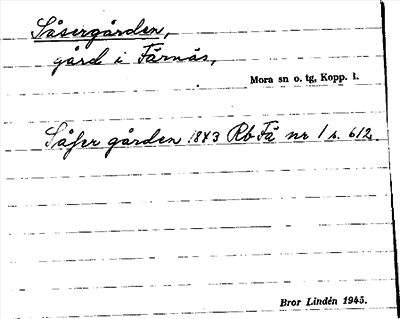 Såsergården,
gård i Färnäs,
Mora sn o. tg, Kopp. l.
Såser gården 1843 Rb Fä nr 1 s. 612.
Bror Lindén 1945.